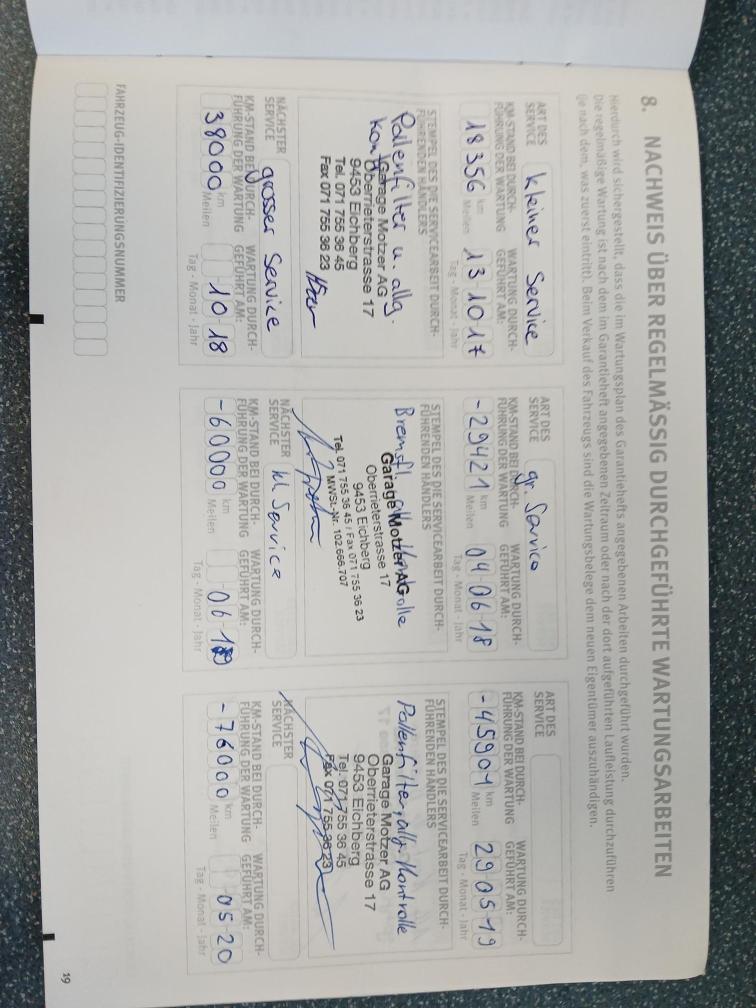 8. NACHWEIS ÜBER REGELMÄSSIG DURCHGEFÜHRTE WARTUNGSARBEITEN
Hierdurch wird sichergestellt, dass die im Wartungsplan des Garantiehefts angegebenen Arbeiten durchgeführt wurden.
Die regelmäßige Wartung ist nach dem im Garantieheft angegebenen Zeitraum oder nach der dort aufgeführten Laufleistung durchzuführen
(je nach dem, was zuerst eintritt). Beim Verkauf des Fahrzeugs sind die Wartungsbelege dem neuen Eigentümer auszuhändigen.
ART DES SERVICE
kleiner Service
KM-STAND BEI DURCH-
FÜHRUNG DER WARTUNG
WARTUNG DURCH-
GEFÜHRT AM:
18356 km
Meilen
13 10 17
Tag - Monat - Jahr
STEMPEL DES DIE SERVICEARBEIT DURCH-
FÜHRENDEN HÄNDLERS
Pollenfilter u. allg.
Garage Motzer AG
Oberrieterstrasse 17
9453 Eichberg
Tel. 071 755 36 45
Fax 071 755 36 23
NÄCHSTER SERVICE
grosser Service
KM-STAND BEI DURCH-
FÜHRUNG DER WARTUNG
WARTUNG DURCH-
GEFÜHRT AM:
38000 km
Meilen
10 18
Tag - Monat - Jahr
ART DES SERVICE
gr. Service
KM-STAND BEI DURCH-
FÜHRUNG DER WARTUNG
WARTUNG DURCH-
GEFÜHRT AM:
-29421 km
Meilen
04 06 18
Tag - Monat - Jahr
STEMPEL DES DIE SERVICEARBEIT DURCH-
FÜHRENDEN HÄNDLERS
Bremsfl.
Garage Motzer AG
Oberrieterstrasse 17
9453 Eichberg
Tel. 071 755 36 45 / Fax 071 755 36 23
MWSt.-Nr. 102.666.707
NÄCHSTER SERVICE
kl Service
KM-STAND BEI DURCH-
FÜHRUNG DER WARTUNG
WARTUNG DURCH-
GEFÜHRT AM:
-60000 km
Meilen
06 19
Tag - Monat - Jahr
ART DES SERVICE
KM-STAND BEI DURCH-
FÜHRUNG DER WARTUNG
WARTUNG DURCH-
GEFÜHRT AM:
-45901 km
Meilen
29 05 19
Tag - Monat - Jahr
STEMPEL DES DIE SERVICEARBEIT DURCH-
FÜHRENDEN HÄNDLERS
Pollenfilter, allg. Kontrolle
Garage Motzer AG
Oberrieterstrasse 17
9453 Eichberg
Tel. 071 755 36 45
Fax 071 755 36 23
NÄCHSTER SERVICE
KM-STAND BEI DURCH-
FÜHRUNG DER WARTUNG
WARTUNG DURCH-
GEFÜHRT AM:
-76000 km
Meilen
05 20
Tag - Monat - Jahr
FAHRZEUG-IDENTIFIZIERUNGSNUMMER
19